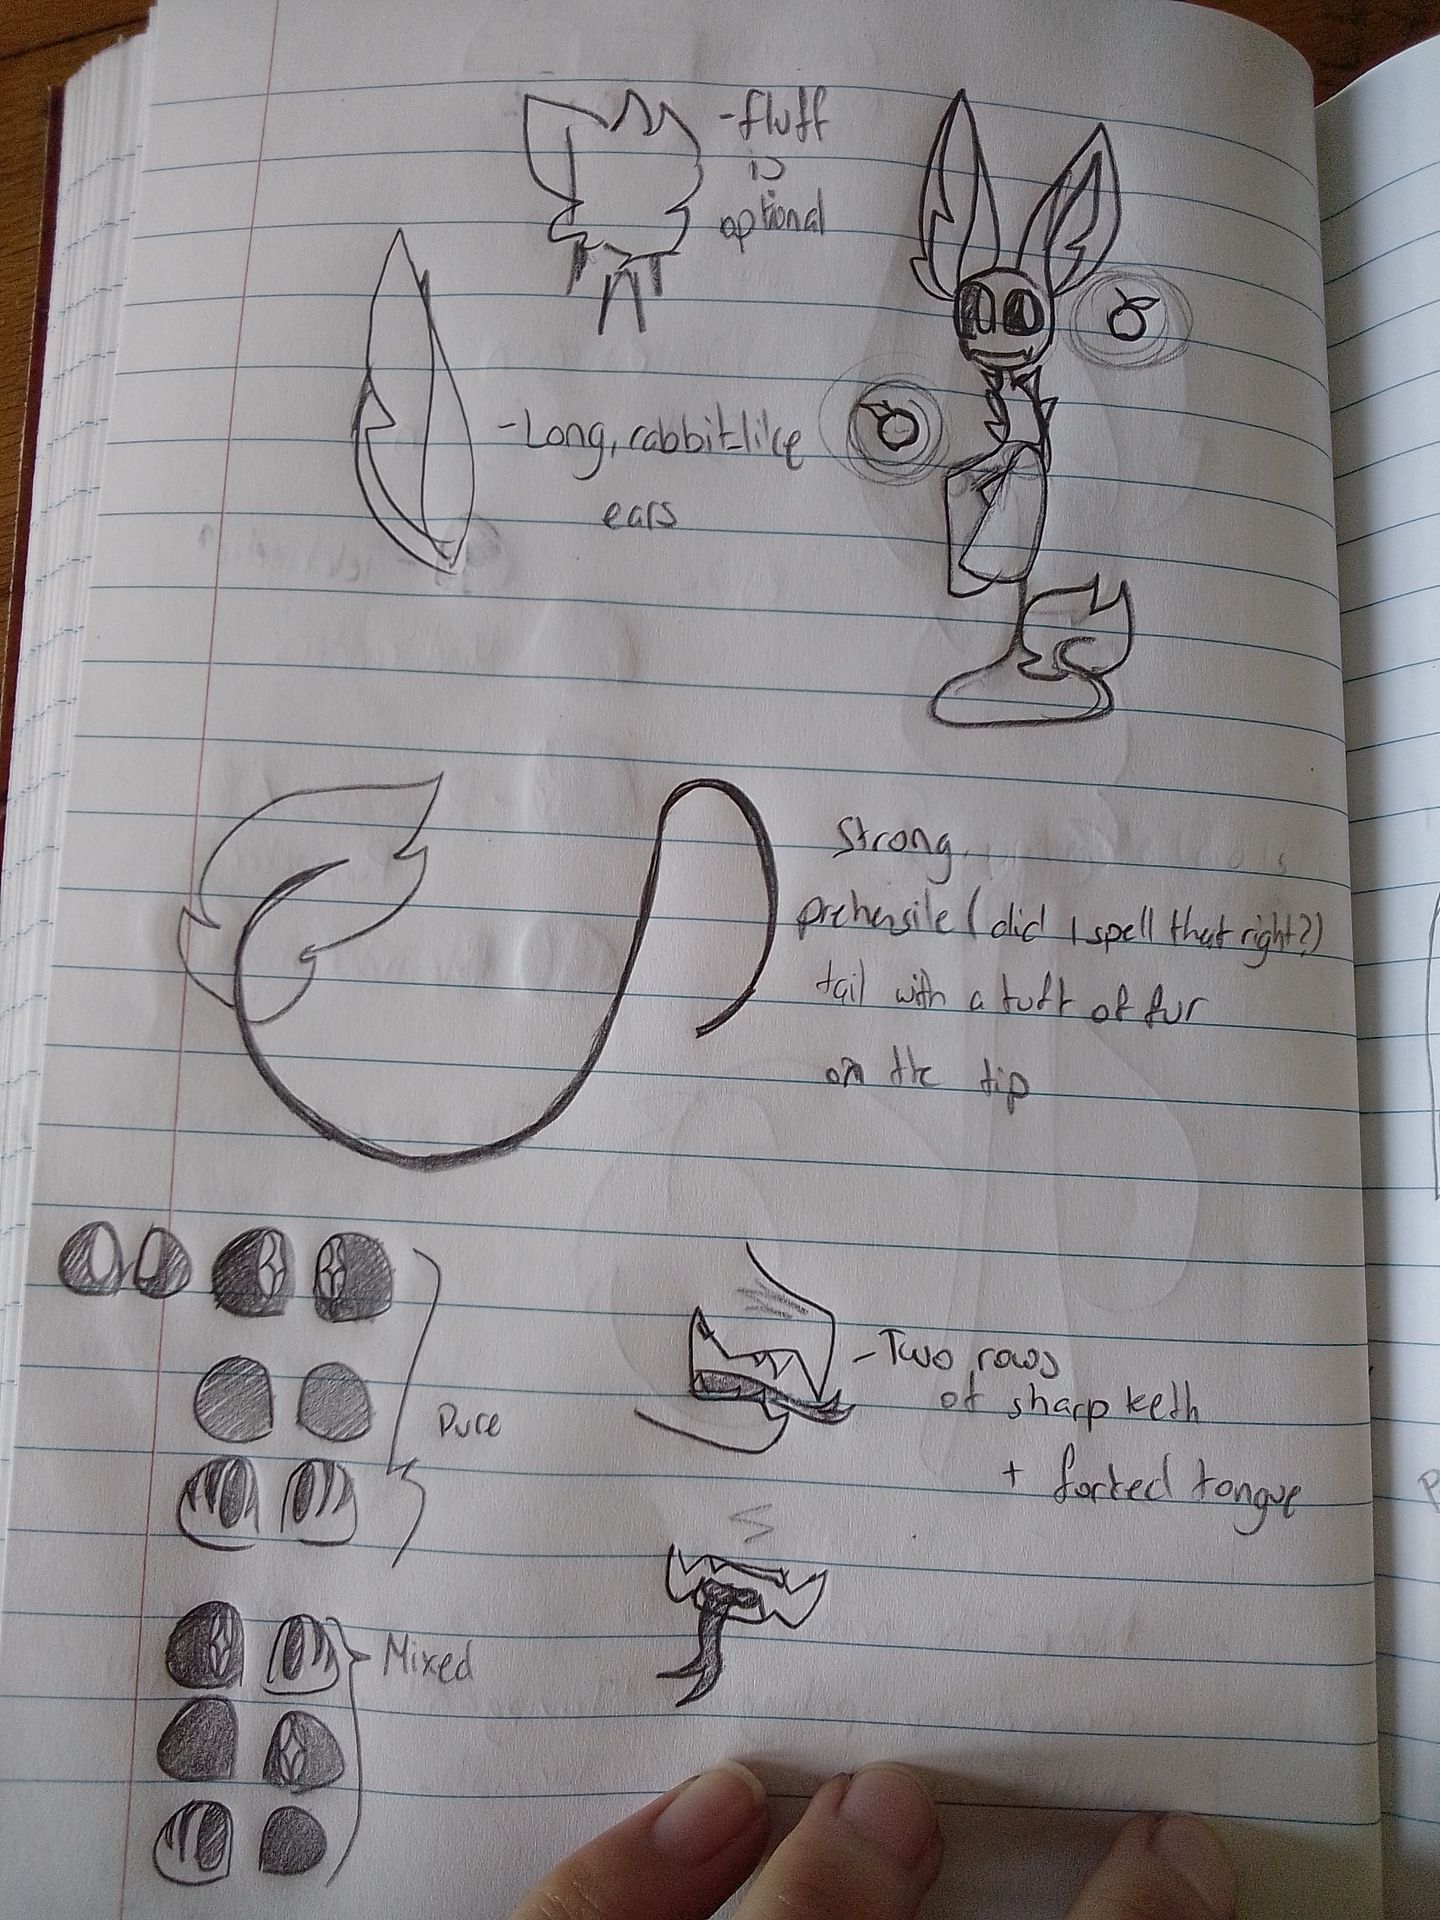 -fluff
is
optional
-Long, rabbit-like
ears
Strong,
prehensile (did I spell that right?)
tail with a tuft of fur
on the tip
Pure
-Two rows
of sharp teeth
+ forked tongue
Mixed